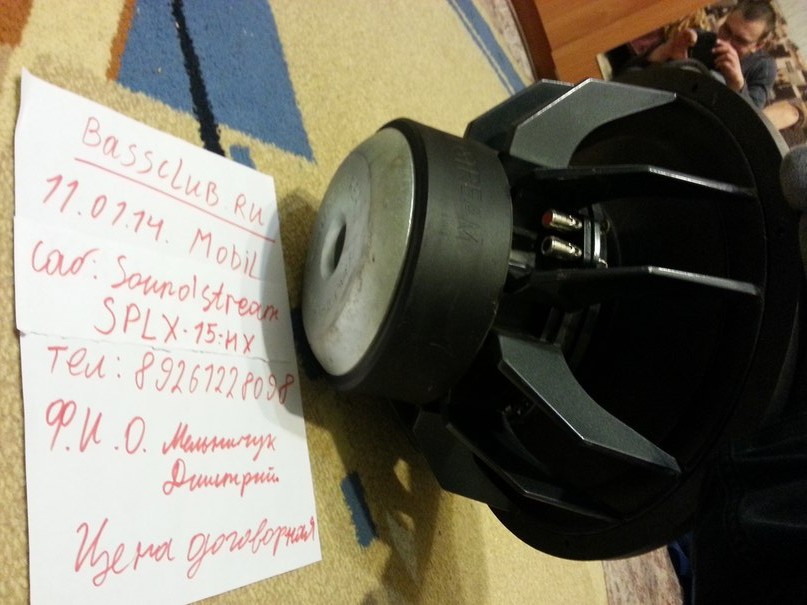 Bassclub.RU
11.01.14. Mobil
Саб: Soundstream
SPLX-15-HX
Тел: 89261228098
Ф.И.О. Мельничук
Дмитрий
Цена договорная